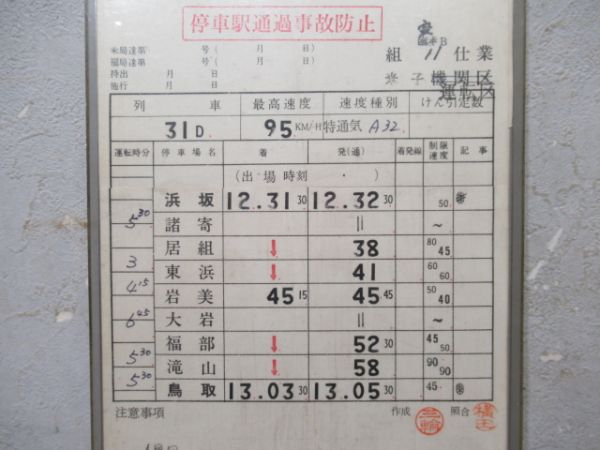 停車駅通過事故防止
米局達第 号( 月 日)
福局達第 号( 月 日)
持出 月 日
施行 月 日
組 11 仕業
米子機関区
運転区
列 車 最高速度 速度種別 けん引定数
31D 95 KM/H 特通気 A32
運転時分 停車場名 着 発(通) 着発線 制限速度 記事
(出場時刻 ・ )
浜坂 12.31 30 12.32 30 50
5 30
諸寄 || ~
居組 ↓ 38 80 45
3
東浜 ↓ 41 60 60
4 15
岩美 45 15 45 45 50 40
6 45
大岩 || ~
福部 ↓ 52 30 45 50
5 30
滝山 ↓ 58 90 90
5 30
鳥取 13.03 30 13.05 30 45
注意事項 作成 三輪 照合